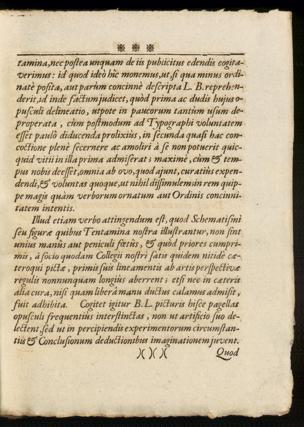 tamina, nec postea unquam de iis publicitus edendis cogita-
verimus: id quod ideò hic monemus, ut, si qua minus ordi-
natè posita, aut parùm concinnè descripta L. B. reprehen-
derit, id inde factum judicet, quòd prima ac dudùm hujus o-
pusculi delineatio, utpote in paucorum tantùm usum de-
properata, cùm postmodum ad Typographi voluntatem
esset paulò diducenda prolixiùs, in secunda quasi hac con-
coctione plenè secernere ac amoliri à se non potuerit quic-
quid vitii in illa prima admiserat; maximè, cùm & tem-
pus nobis deesset, omnia ab ovo, quod ajunt, curatiùs expen-
dendi, & voluntas quoque, ut nihil dissimulem in rem quip-
pe magis quàm verborum ornatum aut Ordinis concinni-
tatem intentis.
Illud etiam verbo attingendum est, quòd Schematismi
seu figuræ quibus Tentamina nostra illustrantur, non sint
unius manûs aut peniculi fœtus, & quòd priores cumpri-
mis, à socio quodam Collegii nostri satis quidem nitidè cæ-
teroqui pictæ, primis suis lineamentis ab artis perspectivæ
regulis nonnunquam longiùs aberrent; etsi nec in cæteris
alia cura, nisi quam liberâ manu ductus calamus admisit,
fuit adhibita. Cogitet igitur B. L. picturis hisce pagellas
opusculi frequentiùs interstinctas, non ut artificio suo de-
lectent, sed ut in percipiendis experimentorum circumstan-
tiis & Conclusionum deductionibus imaginationem juvent.
)( )( )(
Quod